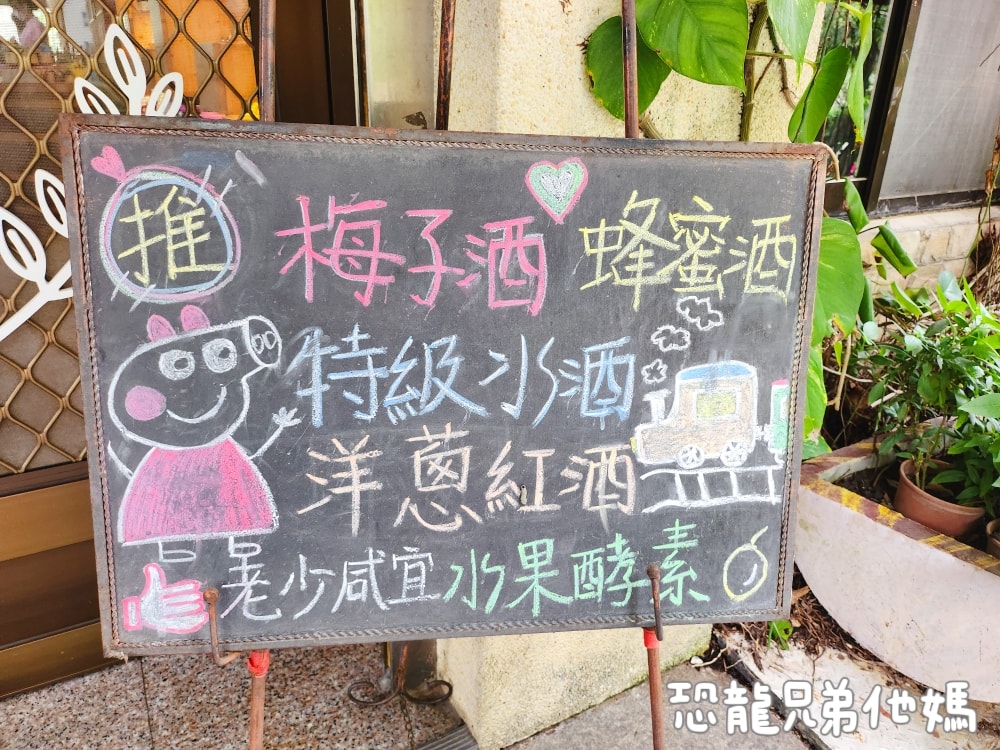 推 梅子酒 蜂蜜酒
特級水酒
洋蔥紅酒
老少咸宜 水果酵素
恐龍兄弟他媽